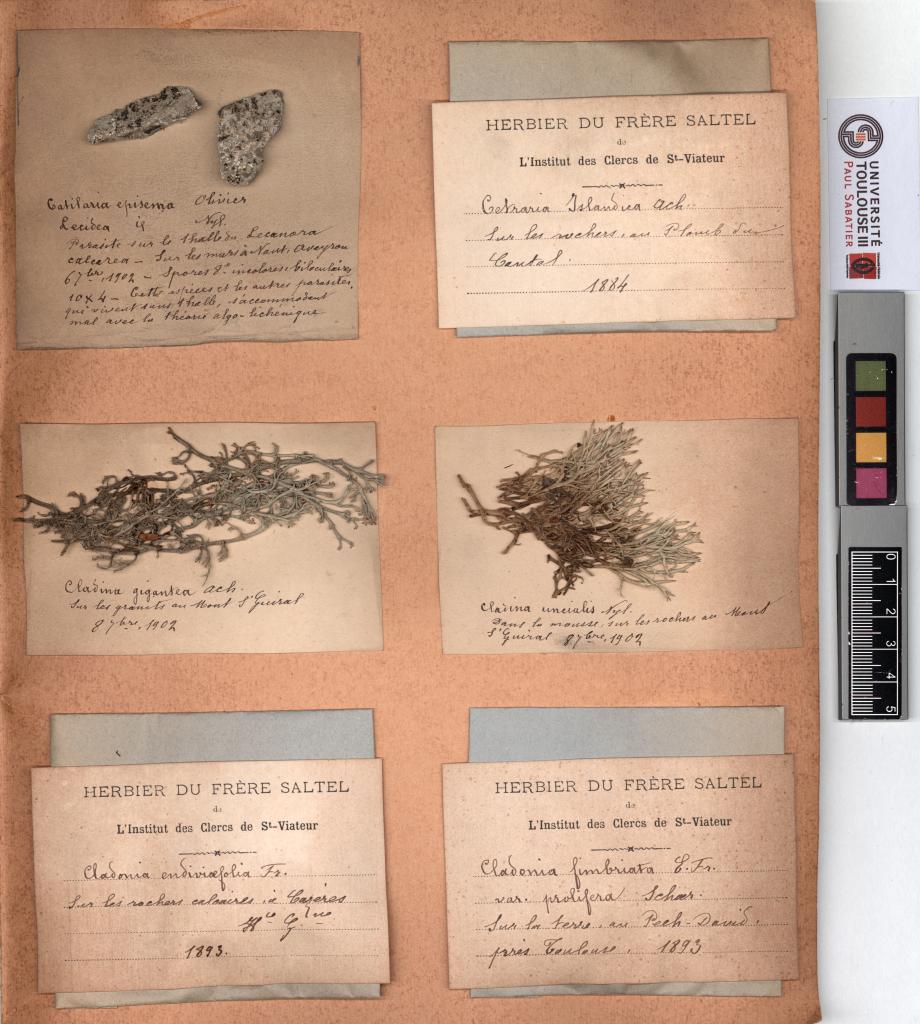 Catillaria episema Olivier
Lecidea id Nyl.
Parasite sur le thalle du Lecanora
calcarea – Sur les murs à Nant, Aveyron
6 7bre, 1902 – Spores 8e incolores, biloculaires,
10 x 4 – Cette espèces et les autres parasites,
qui vivent sans thalle, s'accommodent
mal avec la théorie algo-lichénique
HERBIER DU FRÈRE SALTEL
de
L'Institut des Clercs de St-Viateur
Cetraria Islandica Ach.
Sur les rochers, au Plomb du
Cantal.
1884
Cladina gigantea Ach.
Sur les granits au Mont St Guiral
8 7bre, 1902
Cladina uncialis Nyl.
Dans la mousse, sur les rochers au Mont
St Guiral 8 7bre, 1902
HERBIER DU FRÈRE SALTEL
de
L'Institut des Clercs de St-Viateur
Cladonia endiviæfolia Fr.
Sur les rochers calcaires, à Cazères
Hte Gne
1893.
HERBIER DU FRÈRE SALTEL
de
L'Institut des Clercs de St-Viateur
Cladonia fimbriata E. Fr.
var. prolifera Schær.
Sur la terre, au Pech-David.
près Toulouse. 1893
UNIVERSITÉ
TOULOUSE III
PAUL SABATIER
0 1 2 3 4 5